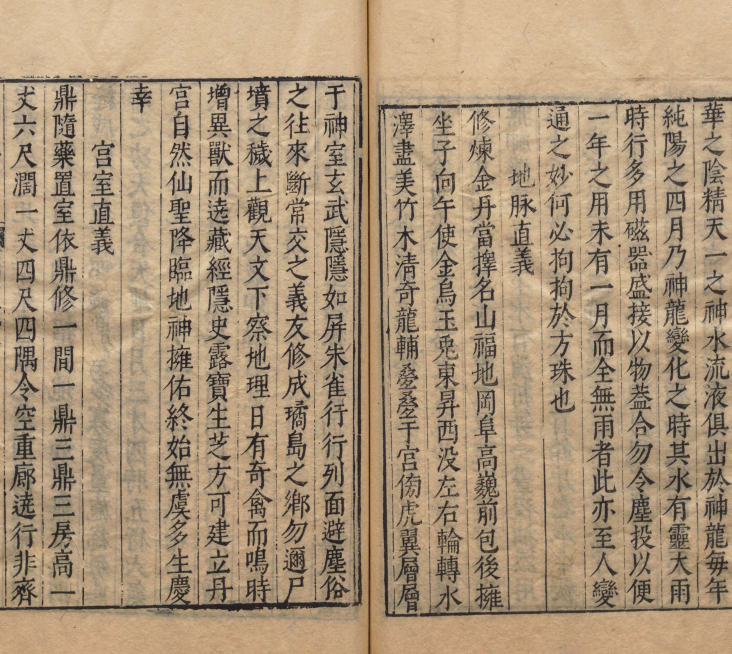 華之陰精天一之神水流液俱出於神龍每年
純陽之四月乃神龍變化之時其水有靈大雨
時行多用磁器盛接以物蓋合勿令塵投以便
一年之用未有一月而全無雨者此亦至人變
通之妙何必拘拘於方珠也
地脉直義
修煉金丹當擇名山福地岡阜高巍前包後擁
坐子向午使金烏玉兎東昇西没左右輪轉水
澤盡美竹木清奇龍輔疊疊于宮傍虎翼層層
于神室玄武隱隱如屏朱雀行行列面避塵俗
之往來斷常交之義友修成璚島之鄉勿邇尸
墳之穢上觀天文下察地理日有奇禽而鳴時
增異獸而遶藏經隱史露寶生芝方可建立丹
宮自然仙聖降臨地神擁佑終始無虞多生慶
幸
宮室直義
鼎隨藥置室依鼎修一間一鼎三鼎三房高一
丈六尺濶一丈四尺四隅令空重廊遶行非齊